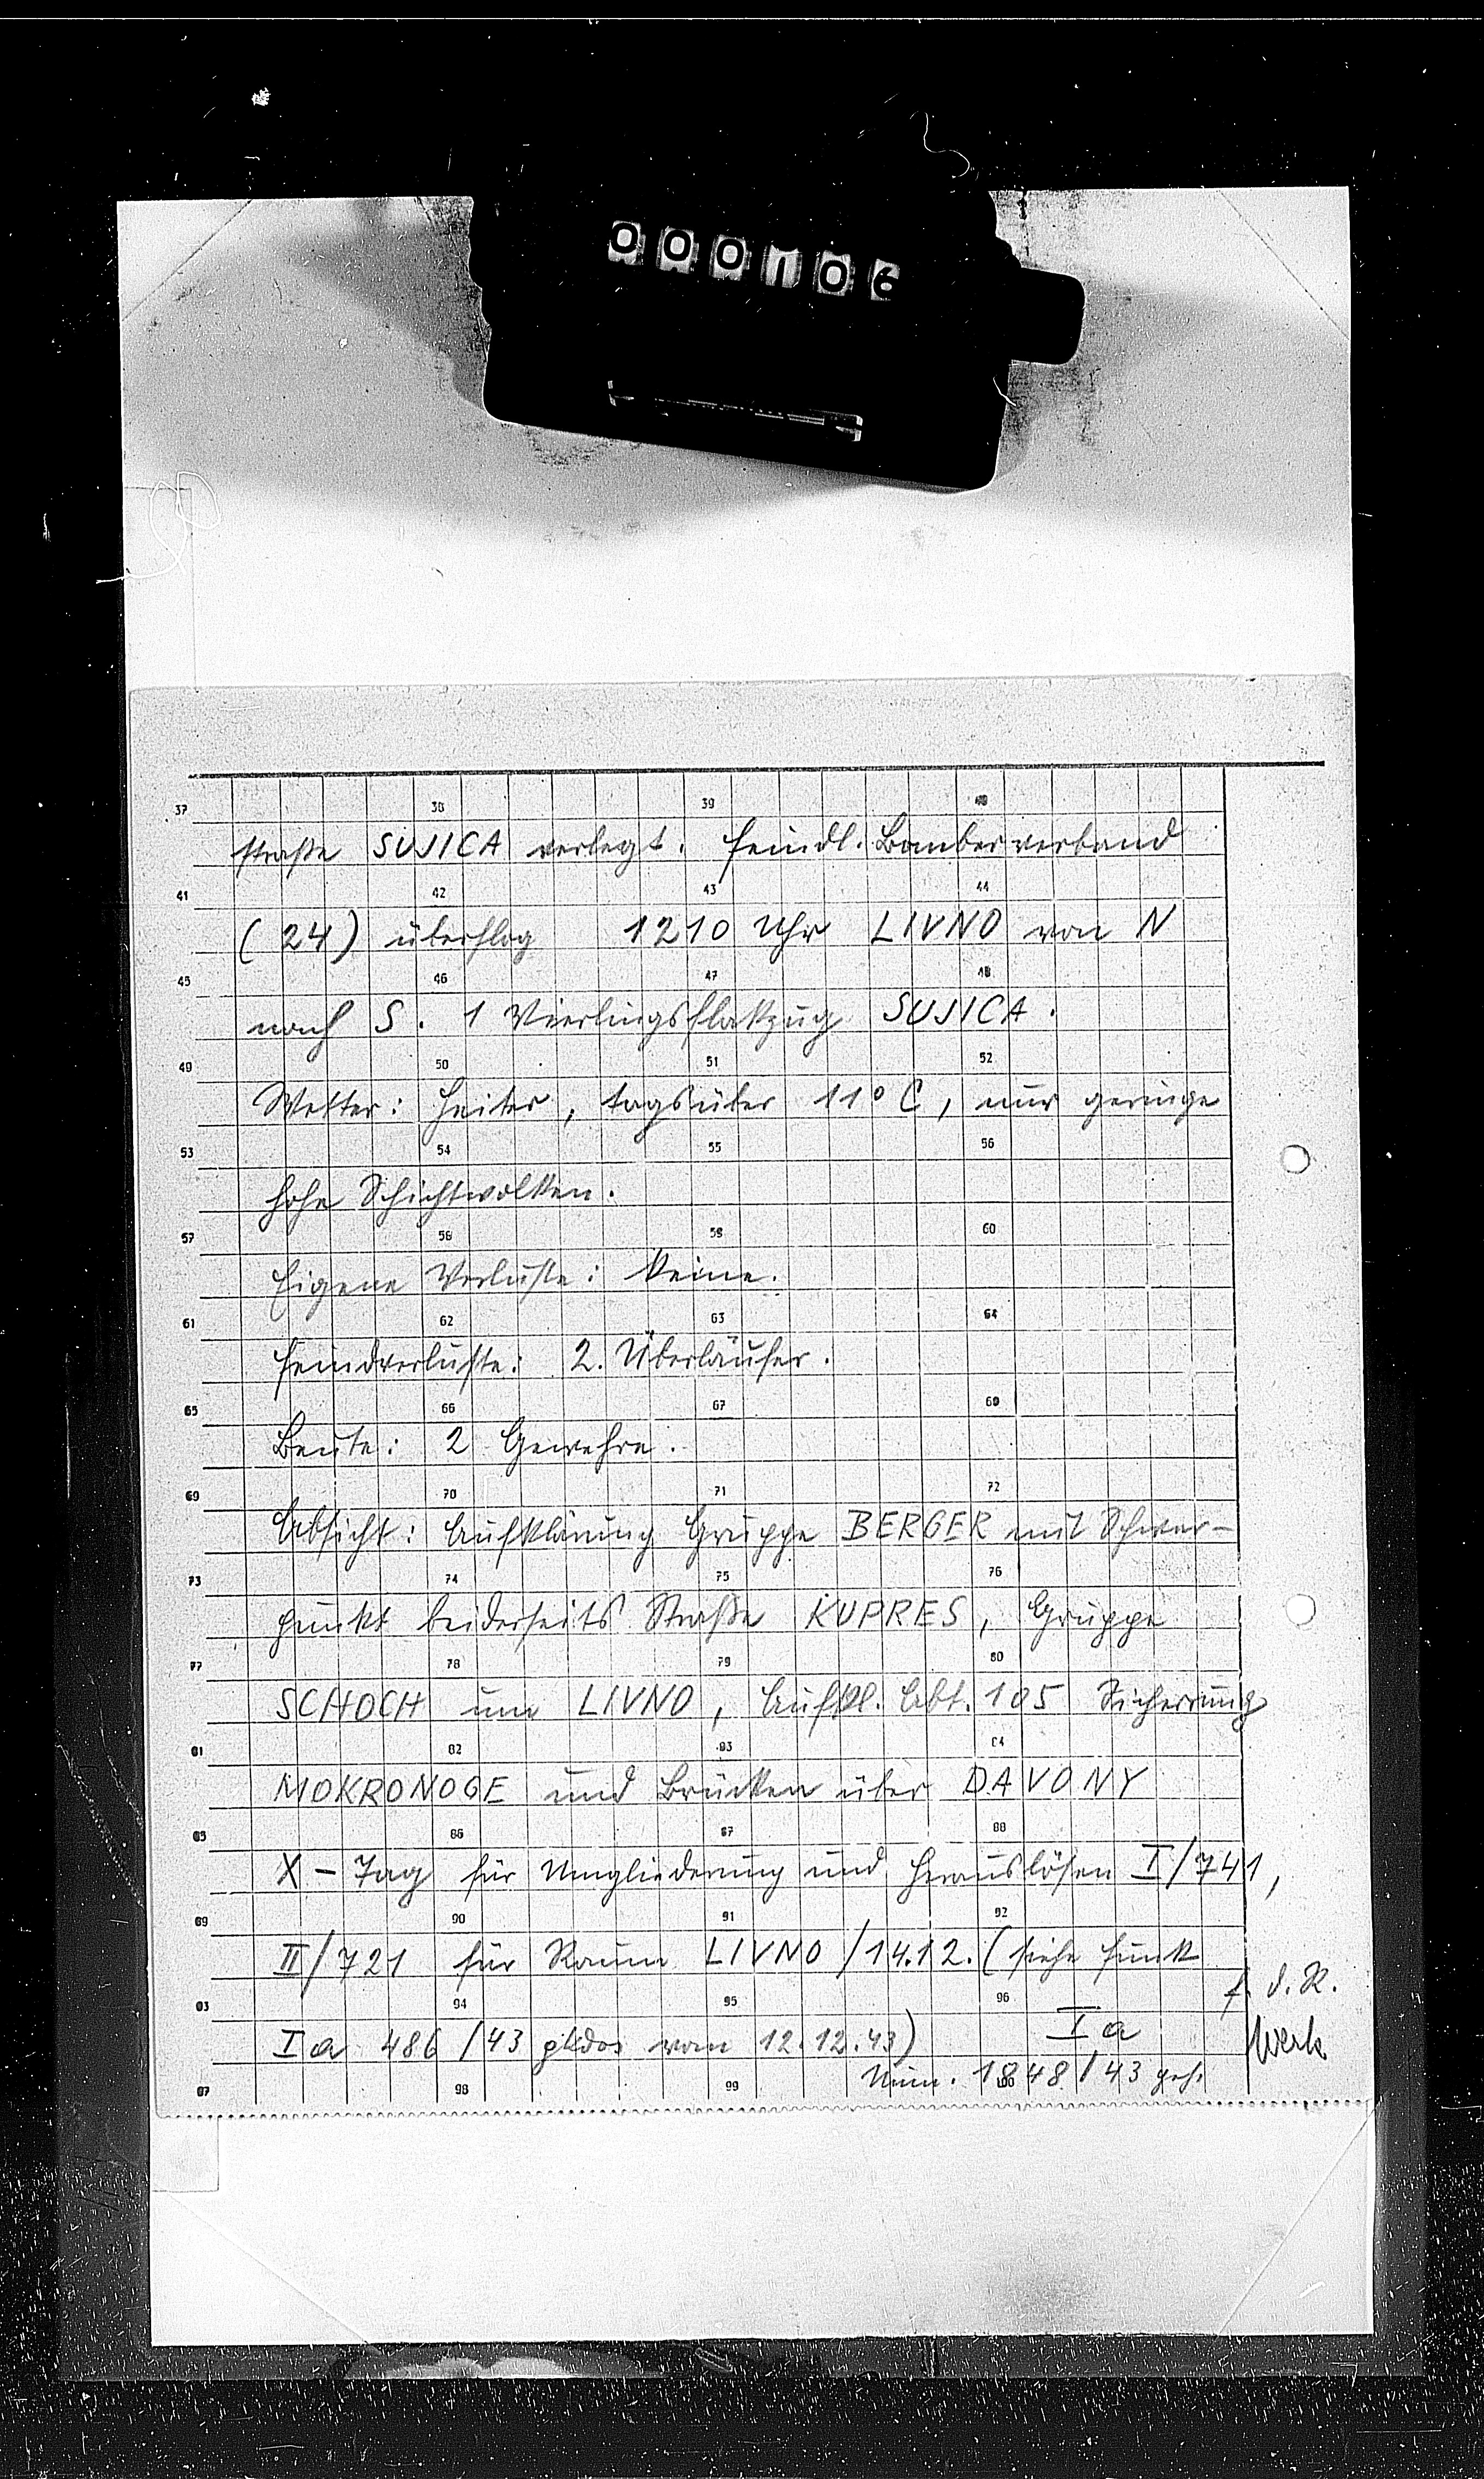 000106
37 38 39 40
straße SUJICA verlegt. Feindl. Bomberverband
41 42 43 44
(24) überflog 1210 Uhr LIVNO von N
45 46 47 48
nach S. 1 Vierlingsflakzug SUJICA.
49 50 51 52
Wetter: Heiter, tagsüber 11° C, nur geringe
53 54 55 56
hohe Schichtwolken.
57 58 59 60
Eigene Verluste: keine.
61 62 63 64
Feindverluste: 2. Überläufer.
65 66 67 68
Beute: 2 Gewehre.
69 70 71 72
Absicht: Aufklärung Gruppe BERGER mit Schwer-
73 74 75 76
punkt beiderseits Straße KUPRES, Gruppe
77 78 79 80
SCHOCH um LIVNO, Aufkl. Abt. 105 Sicherung
81 82 83 84
MOKRONOGE und Brücken über DAVONY
85 86 87 88
X-Tag für Umgliederung und Herauslösen I/741,
89 90 91 92
II/721 für Raum LIVNO /14.12. (siehe Funk
93 94 95 96
Ia 486/43 gKdos vom 12.12.43) Ia
f. d. R.
97 98 99 100
Num. 1848/43 geh.